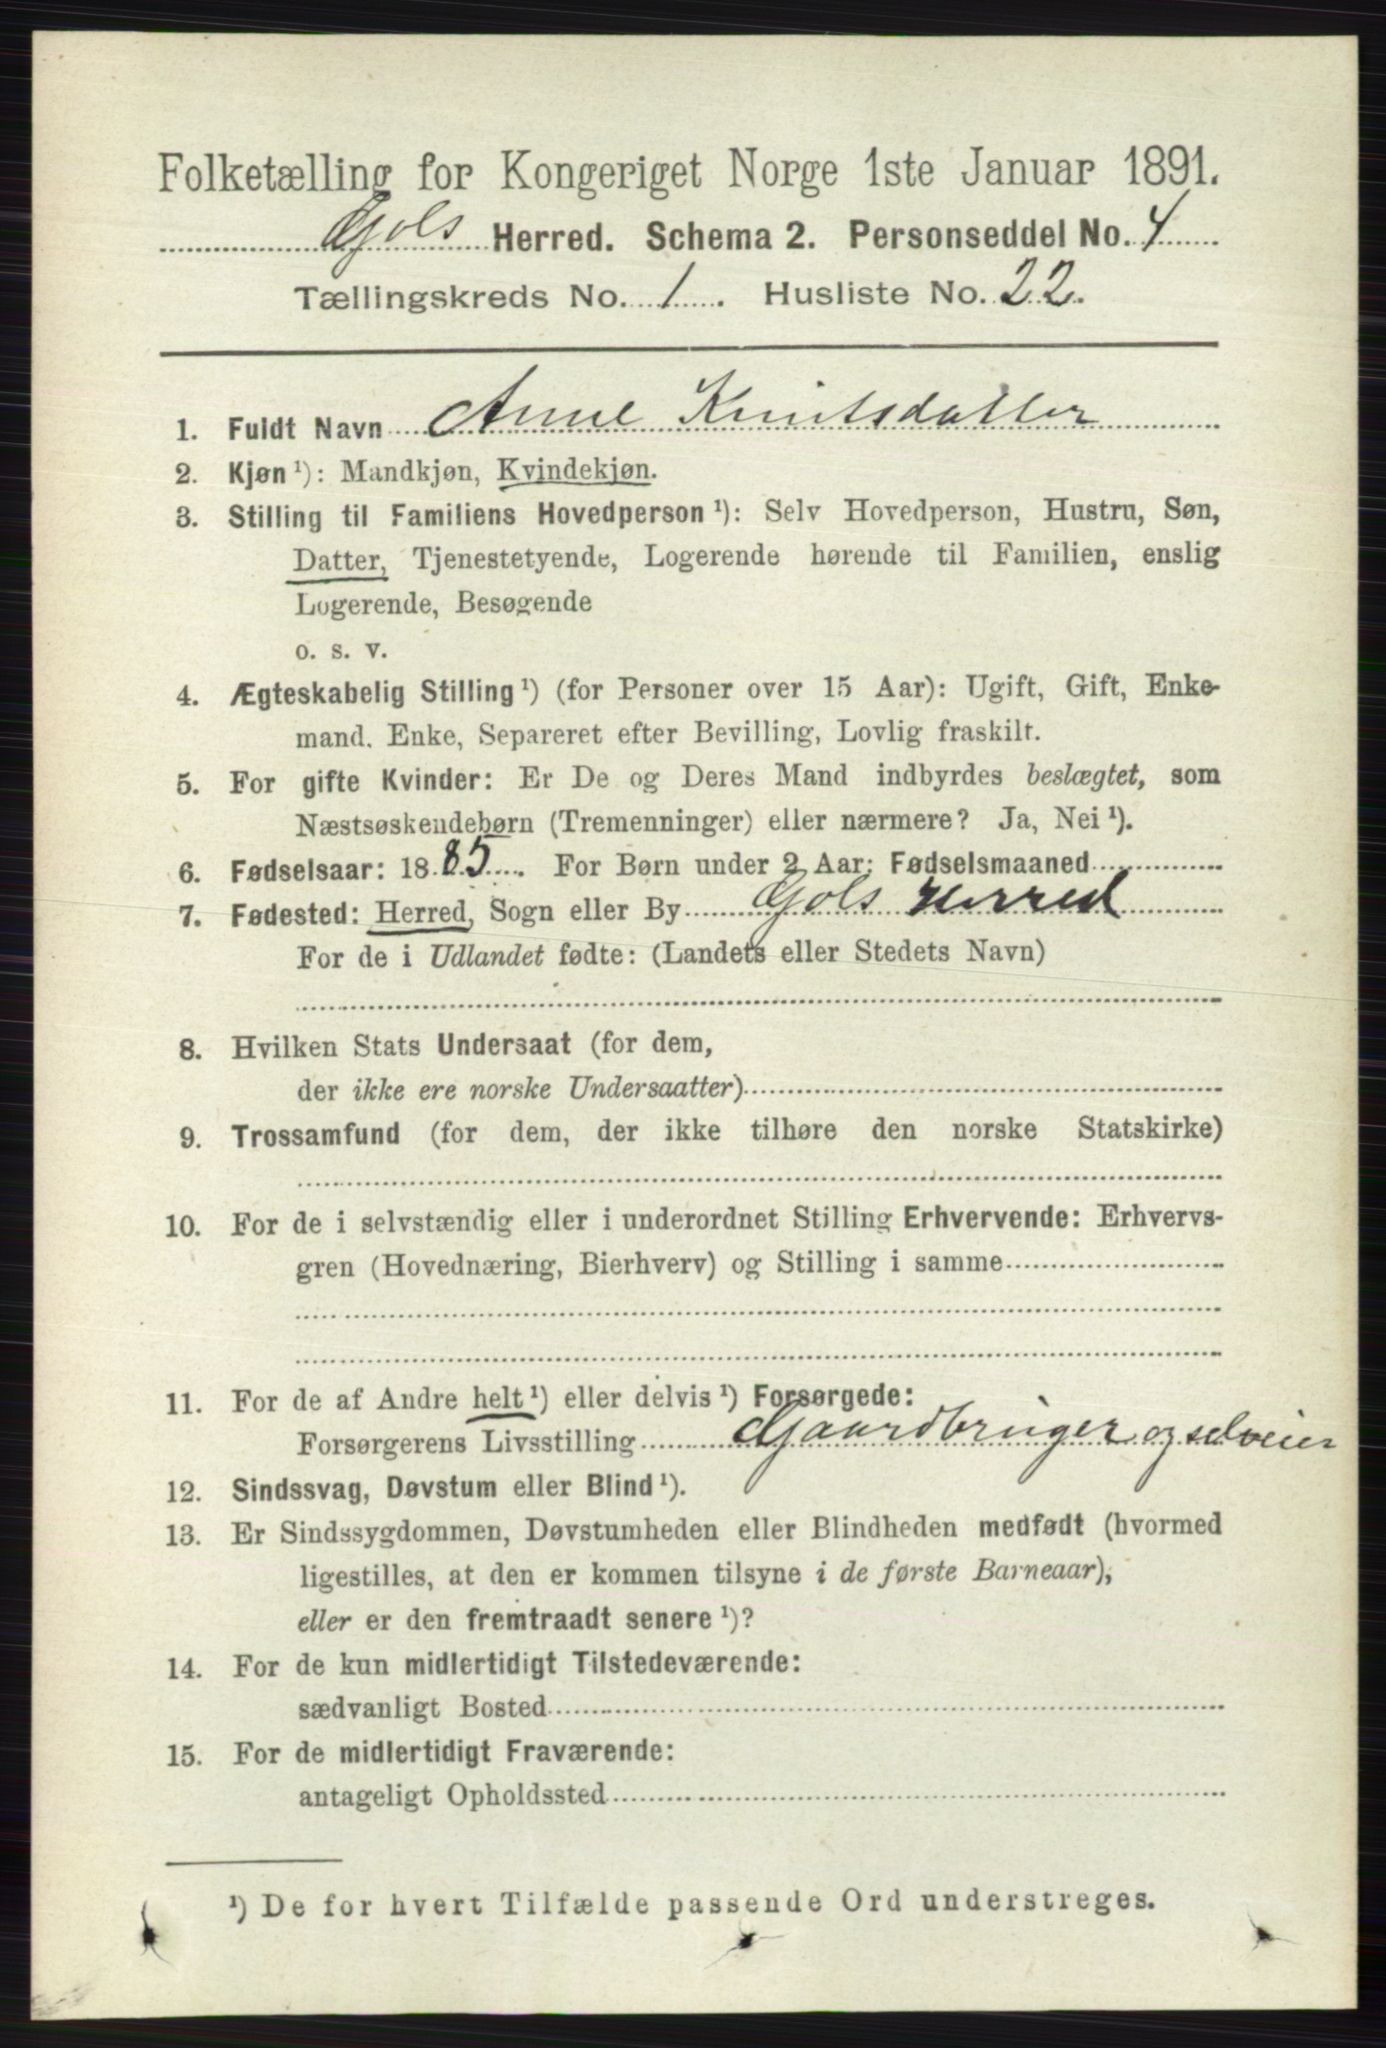 Folketælling for Kongeriget Norge 1ste Januar 1891.
Gols Herred. Schema 2. Personseddel No. 4
Tællingskreds No. 1. Husliste No. 22.
1. Fuldt Navn Anne Knutsdatter
2. Kjøn ¹): Mandkjøn, Kvindekjøn.
3. Stilling til Familiens Hovedperson ¹): Selv Hovedperson, Hustru, Søn,
Datter, Tjenestetyende, Logerende hørende til Familien, enslig
Logerende, Besøgende
o. s. v.
4. Ægteskabelig Stilling ¹) (for Personer over 15 Aar): Ugift, Gift, Enke-
mand. Enke, Separeret efter Bevilling, Lovlig fraskilt.
5. For gifte Kvinder: Er De og Deres Mand indbyrdes beslægtet, som
Næstsøskendebørn (Tremenninger) eller nærmere? Ja, Nei ¹).
6. Fødselsaar: 1885. For Børn under 2 Aar: Fødselsmaaned
7. Fødested: Herred, Sogn eller By Gols Herred
For de i Udlandet fødte: (Landets eller Stedets Navn)
8. Hvilken Stats Undersaat (for dem,
der ikke ere norske Undersaatter)
9. Trossamfund (for dem, der ikke tilhøre den norske Statskirke)
10. For de i selvstændig eller i underordnet Stilling Erhvervende: Erhvervs-
gren (Hovednæring, Bierhverv) og Stilling i samme
11. For de af Andre helt ¹) eller delvis ¹) Forsørgede:
Forsørgerens Livsstilling Gaardbruger og selveier
12. Sindssvag, Døvstum eller Blind ¹).
13. Er Sindssygdommen, Døvstumheden eller Blindheden medfødt (hvormed
ligestilles, at den er kommen tilsyne i de første Barneaar),
eller er den fremtraadt senere ¹)?
14. For de kun midlertidigt Tilstedeværende:
sædvanligt Bosted
15. For de midlertidigt Fraværende:
antageligt Opholdssted
¹) De for hvert Tilfælde passende Ord understreges.